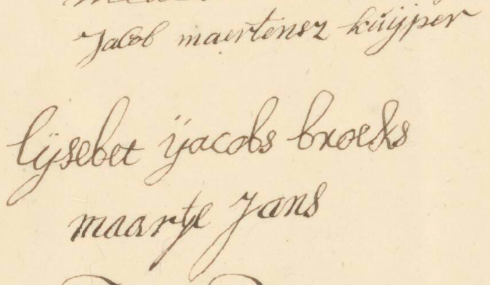 Jacob maertensz kuijper
lijsebet ijacobs broeks
maartje Jans